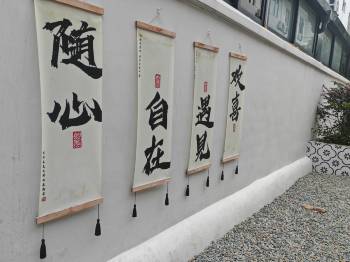 随心
自在
遇見
欢喜